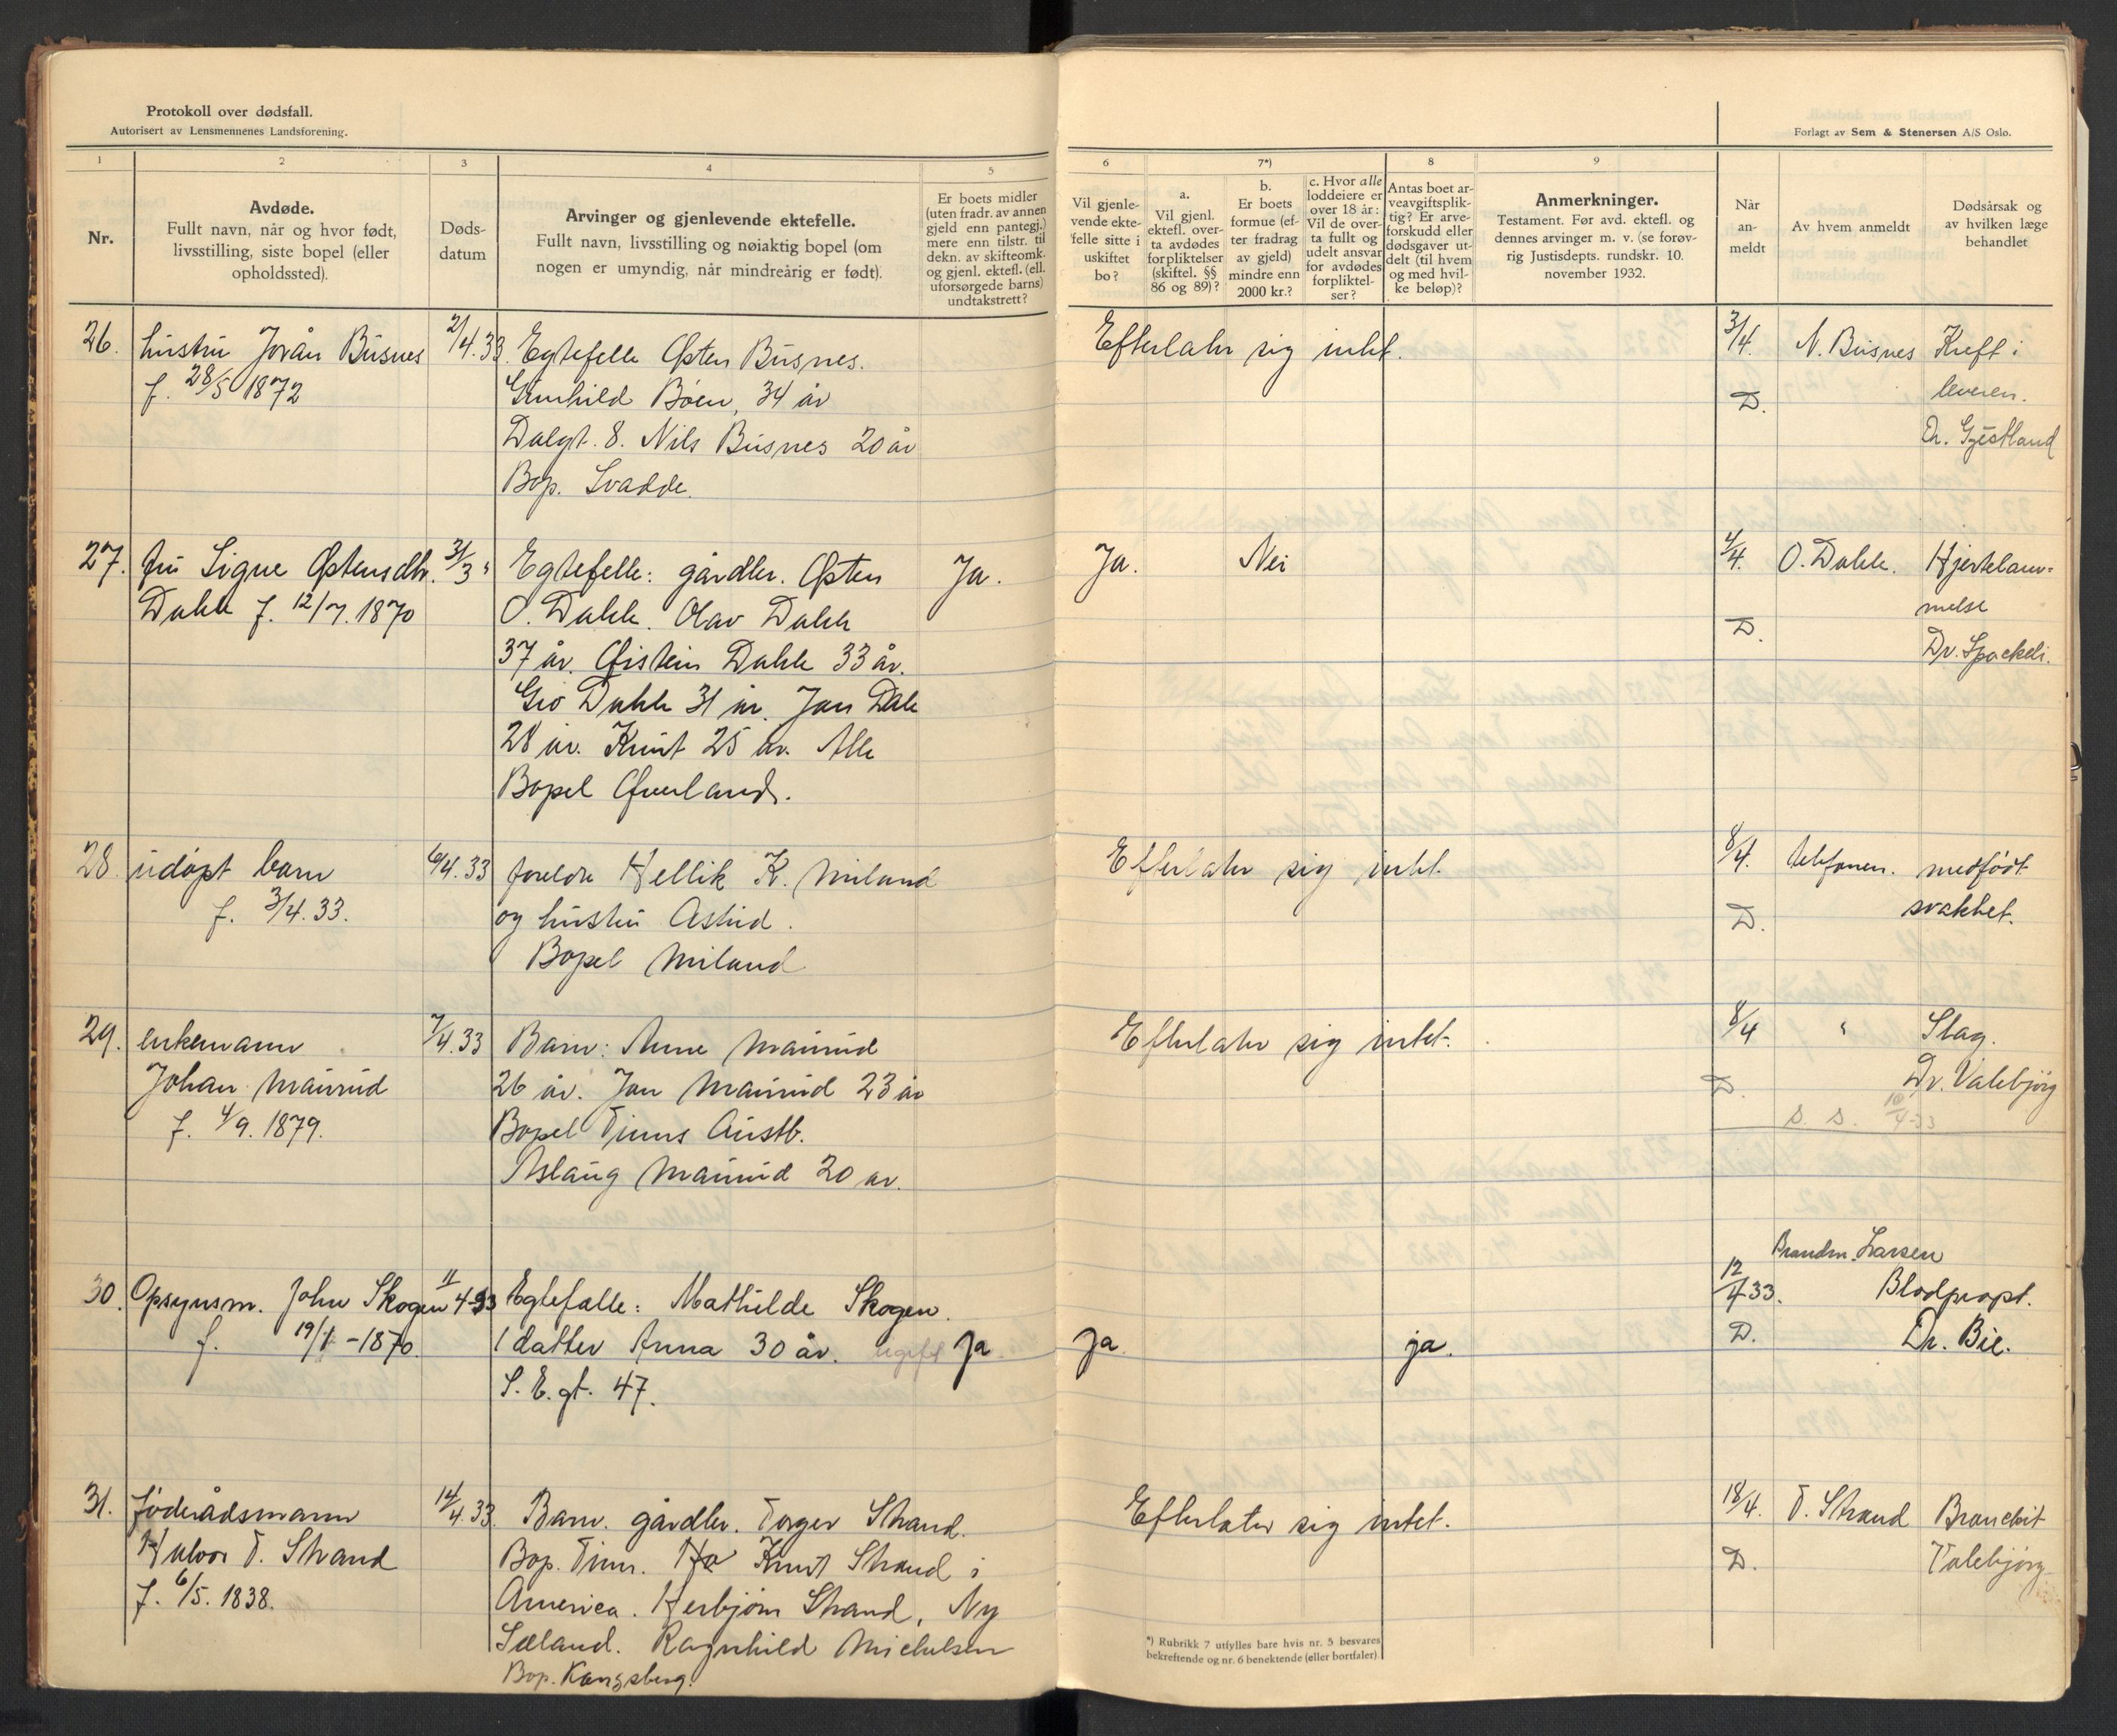 Protokoll over dødsfall.
Autorisert av Lensmennenes Landsforening.
Forlagt av Sem & Stenersen A/S Oslo.
1
2
3
4
5
6
7*)
8
9
Nr.
Avdøde.
Fullt navn, når og hvor født,
livsstilling, siste bopel (eller
opholdssted).
Døds-
datum
Arvinger og gjenlevende ektefelle.
Fullt navn, livsstilling og nøiaktig bopel (om
nogen er umyndig, når mindreårig er født).
Er boets midler
(uten fradr. av annen
gjeld enn pantegj.)
mere enn tilstr. til
dekn. av skifteomk.
og gjenl. ektefl. (ell.
uforsørgede barns)
undtakstrett?
Vil gjenle-
vende ekte-
felle sitte i
uskiftet
bo?
a.
Vil gjenl.
ektefl. over-
ta avdødes
forpliktelser
(skiftel. §§
86 og 89)?
b.
Er boets
formue (ef-
ter fradrag
av gjeld)
mindre enn
2000 kr.?
c. Hvor alle
loddeiere er
over 18 år:
Vil de over-
ta fullt og
udelt ansvar
for avdødes
forpliktel-
ser?
Antas boet ar-
veavgiftsplik-
tig? Er arve-
forskudd eller
dødsgaver ut-
delt (til hvem
og med hvil-
ke beløp)?
Anmerkninger.
Testament. Før avd. ektefl. og
dennes arvinger m. v. (se forøv-
rig Justisdepts. rundskr. 10.
november 1932.
Når
an-
meldt
Av hvem anmeldt
Dødsårsak og
av hvilken læge
behandlet
26. hustru Jorån Busnes 2/4.33. Egtefelle Østen Busnes. Efterlater sig intet. 3/4. N. Busnes Kreft i
f. 28/5 1872 Gunhild Bøen, 34 år D. leveren.
Dalgt. 8. Nils Busnes 20 år Dr. Gjestland
Bop. Svadde.
27. fru Signe Østensdtr. 31/3 " Egtefelle: gårdbr. Østen Ja. Ja. Nei 4/4. O. Dahle. Hjertelam-
Dahle f. 12/7. 1870 O. Dahle. Olav Dahle melse
37 år. Øistein Dahle 33 år. D. Dr. Spockeli.
Gro Dahle 31 år. Jan Dale
28 år. Knut 25 år. Alle
Bopel Øverland.
28. udøpt barn 6/4.33 foreldre Hellik K. Miland Efterlater sig intet. 8/4. telefonen. medfødt
f. 3/4. 33. og hustru Astrid. D. svakhet.
Bopel Miland
29. enkemann 7/4.33 Barn: Anne Maurud Efterlater sig intet. 8/4 " Slag.
Johan Maurud 26 år. Jon Maurud 23 år D. Dr. Valebjørg
f. 4/9. 1879. Bopel Tinns Austb. S. S. 10/4-33
Aslaug Maurud 20 år.
Brandm. Larsen
30. Opsynsm. John Skogen 11/4-33 Egtefælle: Mathilde Skogen. 12/4-33. Blodpropt.
f. 19/1-1870. 1 datter Anna 30 år. ugift Ja Ja. ja. D. Dr. Bie.
S. E. gt. 47.
31. føderådsmann 14/4.33. Barn. gårdbr. Torger Strand. Efterlater sig intet. 18/4. T. Strand Bronchit
Halvor T. Strand Bop. Tinn. Knut Strand i D. Valebjørg
f. 6/5. 1838. America. Herbjørn Strand, Ny
Sæland. Ragnhild Michelsen
Bop. Kongsberg.
*) Rubrikk 7 utfylles bare hvis nr. 5 besvares
bekreftende og nr. 6 benektende (eller bortfaler).